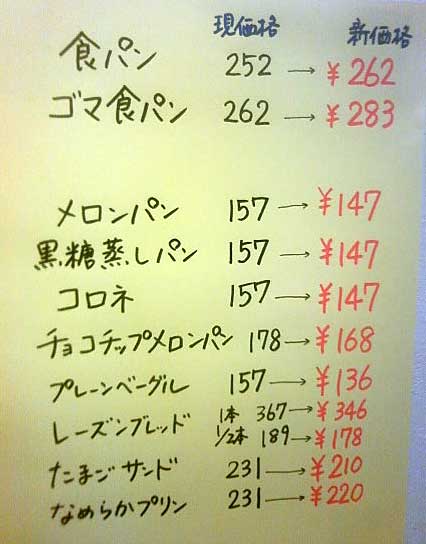 現価格 新価格
食パン 252 → ¥262
ゴマ食パン 262 → ¥283
メロンパン 157 → ¥147
黒糖蒸しパン 157 → ¥147
コロネ 157 → ¥147
チョコチップメロンパン 178 → ¥168
プレーンベーグル 157 → ¥136
レーズンブレッド 1本 367 → ¥346
1/2本 189 → ¥178
たまごサンド 231 → ¥210
なめらかプリン 231 → ¥220